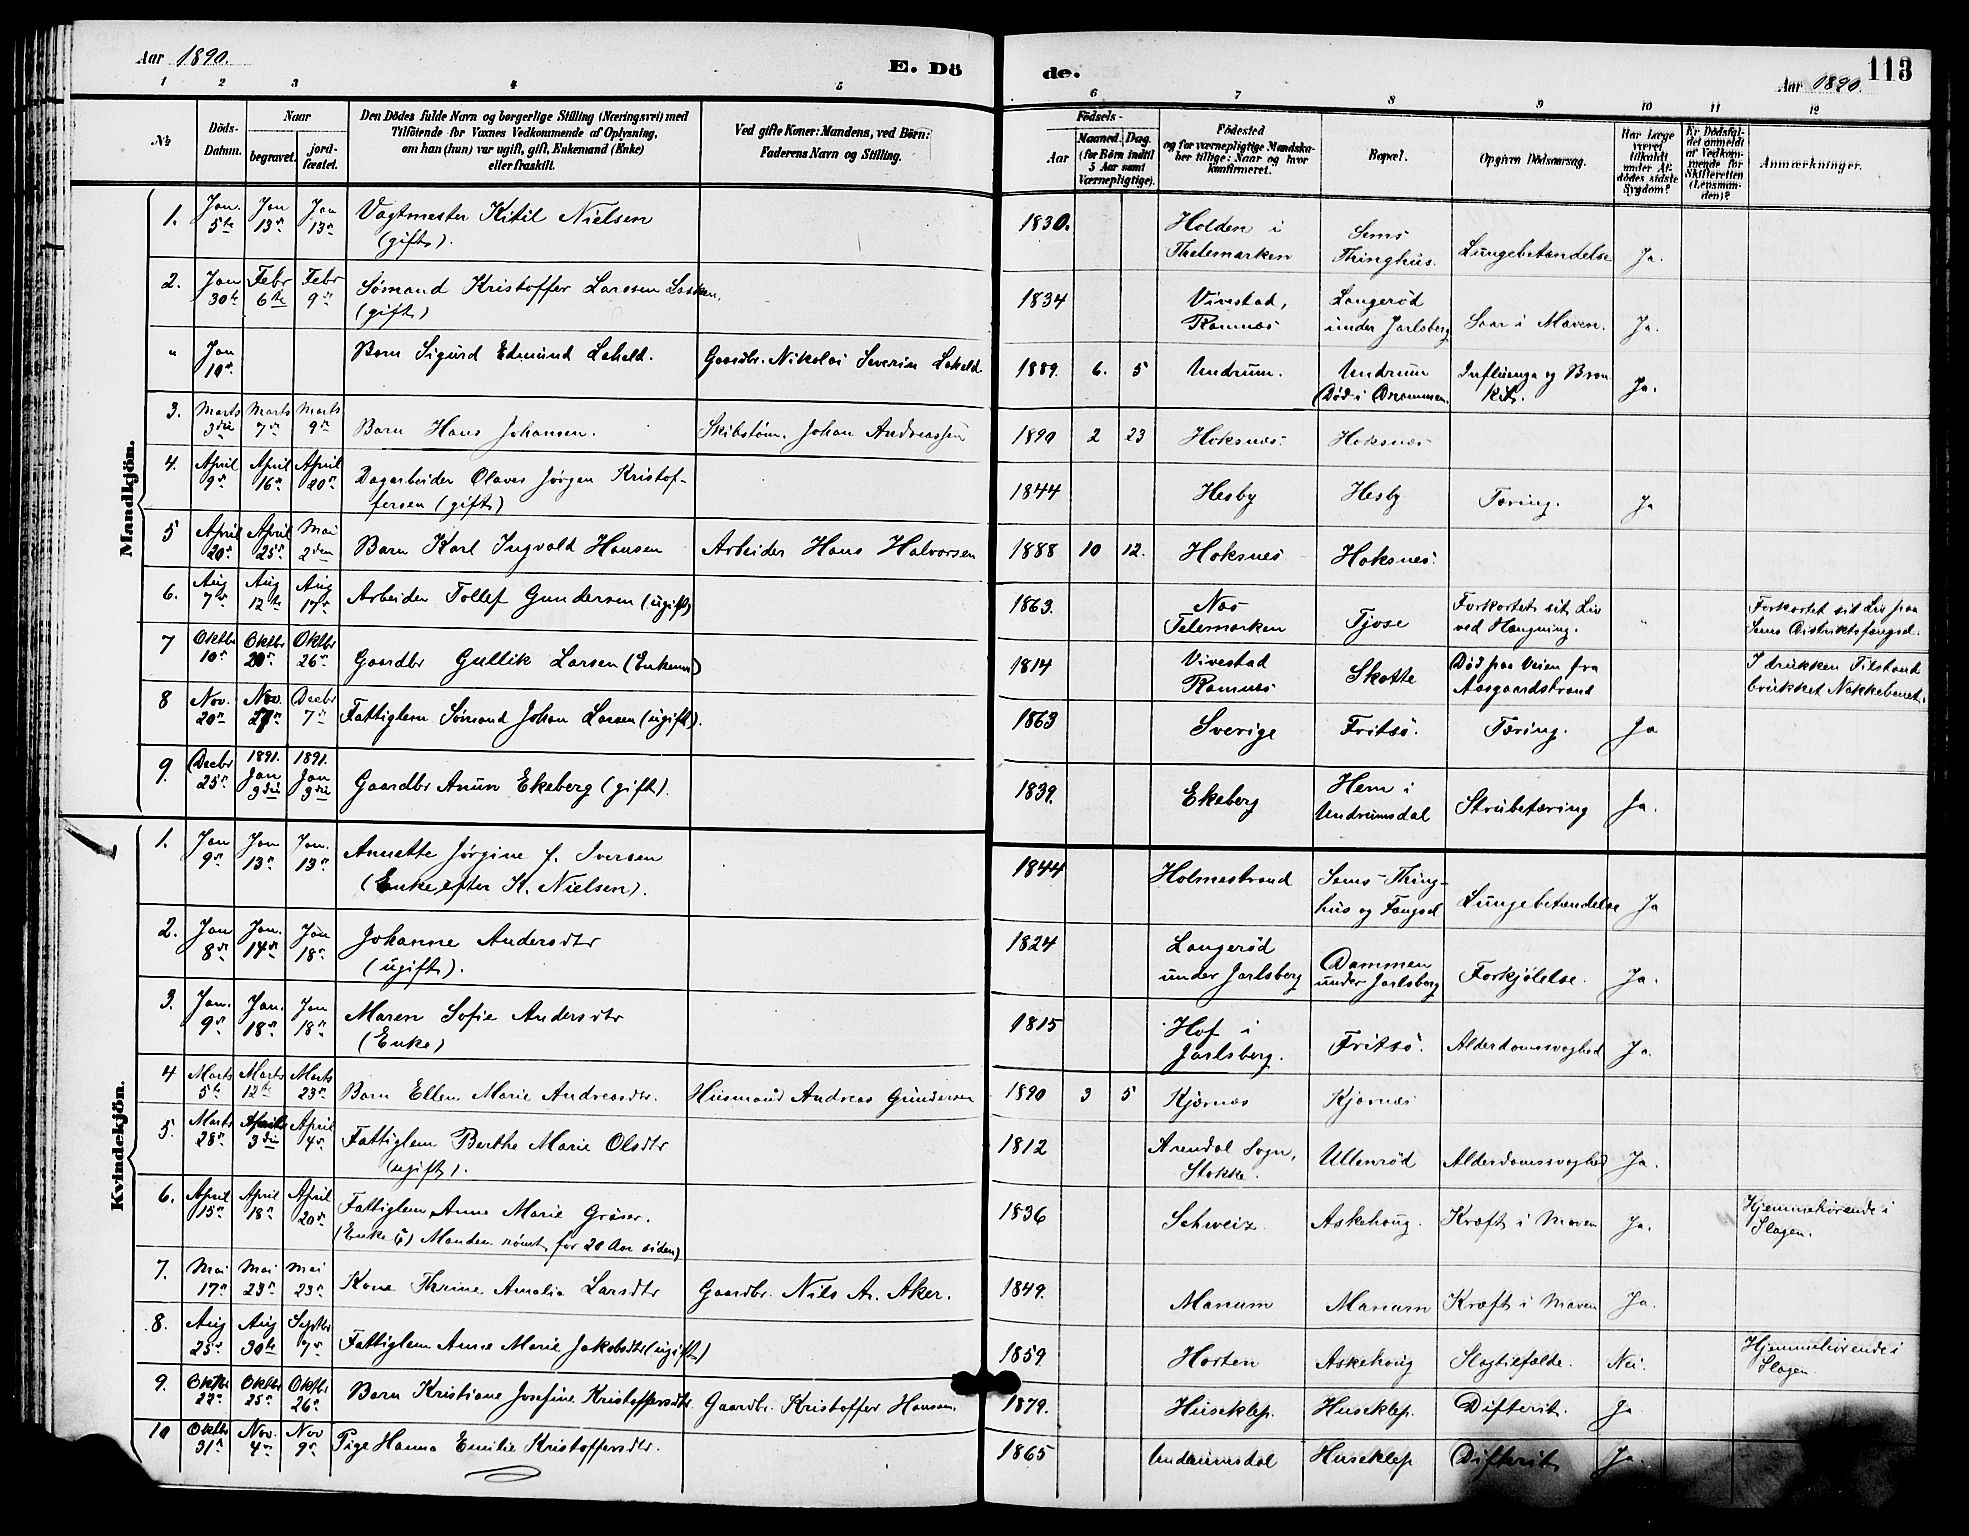 Aar 1890.
E. Döde.
Aar 1890.
113
1 2 3 4 5 6 7 8 9 10 11 12
№
Döds-Datum.
Naar
begravet.
jord-fæstet.
Den Dödes fulde Navn og borgerlige Stilling (Næringsvei) med
Tilföiende for Voxnes Vedkommende af Oplysning,
om han (hun) var ugift, gift, Enkemand (Enke)
eller fraskilt.
Ved gifte Koner: Mandens, ved Börn:
Faderens Navn og Stilling.
Födsels-
Aar
Maaned. Dag.
(for Börn indtil
5 Aar samt
Værnepligtige).
Födested
og for værnepligtige Mandska-
ber tillige: Naar og hvor
konfirmeret.
Bopæl.
Opgiven Dödsaarsag.
Har Læge
været
tilkaldt
under Af-
dödes sidste
Sygdom?
Er Dödsfal-
det anmeldt
af Vedkom-
mende for
Skifteretten
(Lensman-
den)?
Anmærkninger.
Mandkjön.
1. Jan. 5te Jan 13de Jan 13de Vagtmester Kitil Nielsen (gift). 1830. Holden i Thelemarken Sems Thinghus. Lungebetændelse Ja.
2. Jan 30te Febr 6te Febr 9de Sømand Kristoffer Larssen Lasken, (gift) 1834 Vivestad, Ramnæs Langerød under Jarlsberg Saar i Maven. Ja.
" Jan 10de Barn Sigurd Edmund Lefeld. Gaardbr. Nikolai Severin Lefeld 1889. 6. 5 Undrum. Undrum (Død i Drammen. Influenza og Bronkit. Ja.
3. Marts 3die Marts 7de Marts 9de Barn Hans Johansen. Skibstøm. Johan Andreassen 1890 2 23 Hoksnæs. Hoksnæs
4. April 9de April 16de April 20de Dagarbeider Olaves Jørgen Kristof-
fersen (gift) 1844 Hesby Hesby Tæring. Ja
5 April 20de April 25de Mai 2den Barn Karl Ingvald Hansen Arbeider Hans Halvorsen 1888 10 12. Hoksnæs Hoksnæs.
6. Aug 7de Aug 12te Aug 17de Arbeider Tollef Gundersen (ugift) 1863. Næs Telemarken Tjose Forkortet sit Liv ved Hængning. " Forkortet sit Liv paa Sems Distriktsfængsel.
7 Oktbr 10de Oktbr 20de Oktbr 26de Gaardbr Gullik Larsen (Enkem) 1814 Vivestad Ramnæs Skotte Død paa Veien fra Aasgaardstrand I drukken Tilstand brukket Nakkebenet.
8 Nov. 20de Nov. 27de Decbr 7de Fattiglem Sømand Johan Larsen (ugift). 1863 Sverige Fritsø. Tæring. Ja
9. Decbr 25de 1891. Jan 3die 1891. Jan 3die Gaardbr Anun Ekeberg (gift). 1839. Ekeberg Hem i Undrumsdal Strubetæring Ja.
Kvindekjön.
1. Jan 9de Jan 13de Jan. 13de Annette Jørgine f. Iversen (Enke efter K. Nielsen). 1844 Holmestrand Sems-Thing-
hus og Fængsel Lungebetændelse Ja
2. Jan. 8de Jan. 14de Jan 18de Johanne Andersdtr (ugift). 1824 Langerød under Jarlsberg Dammen under Jarlsberg Forkjølelse. Ja.
3. Jan. 9de Jan. 18de Jan 18de Maren Sofie Andersdtr (Enke) 1815 Hof i Jarlsberg. Fritsø. Alderdomssvaghed Ja.
4 Marts 5te Marts 12te Marts 23de Barn Ellen Marie Andreasdtr. Husmand Andreas Gundersen 1890 3 5 Kjærnæs Kjærnæs
5. Marts 28de April 3die April 4de Fattiglem Berthe Marie Olsdtr (ugift). 1812 Arendal Sogn, Stokke. Ullenrød Alderdomssvaghed Ja.
6. April 15de April 18de April 20de Fattiglem Anne Marie Grøner. (Enke (?) Manden rømt for 20 Aar siden) 1836 Schweiz Askehoug. Kræft i Maven Ja. Hjemmehørende i Slagen.
7. Mai 17de Mai 23de Mai 23de Kone Thrine Amalia Larsdtr Gaardbr. Nils A. Aker. 1849. Manum Manum Kræft i Maven Ja.
8. Aug 25de Aug 30te Septbr 7de Fattiglem Anne Marie Jakobsdtr (ugift) 1859 Horten Askehoug Slagtilfælde. Nei. Hjemmehørende i Slagen
9. Oktbr 22de Oktbr 25de Oktbr 26de Barn Kristiane Josefine Kristoffersdtr. Gaardbr. Kristoffer Hansen. 1879. Huseklep. Huseklep. Difterit. Ja
10 Oktbr 31te Nov. 4de Nov 9de Pige Hanna Emilie Kristoffersdtr. 1865 Undrumsdal Huseklep Difterit Ja.